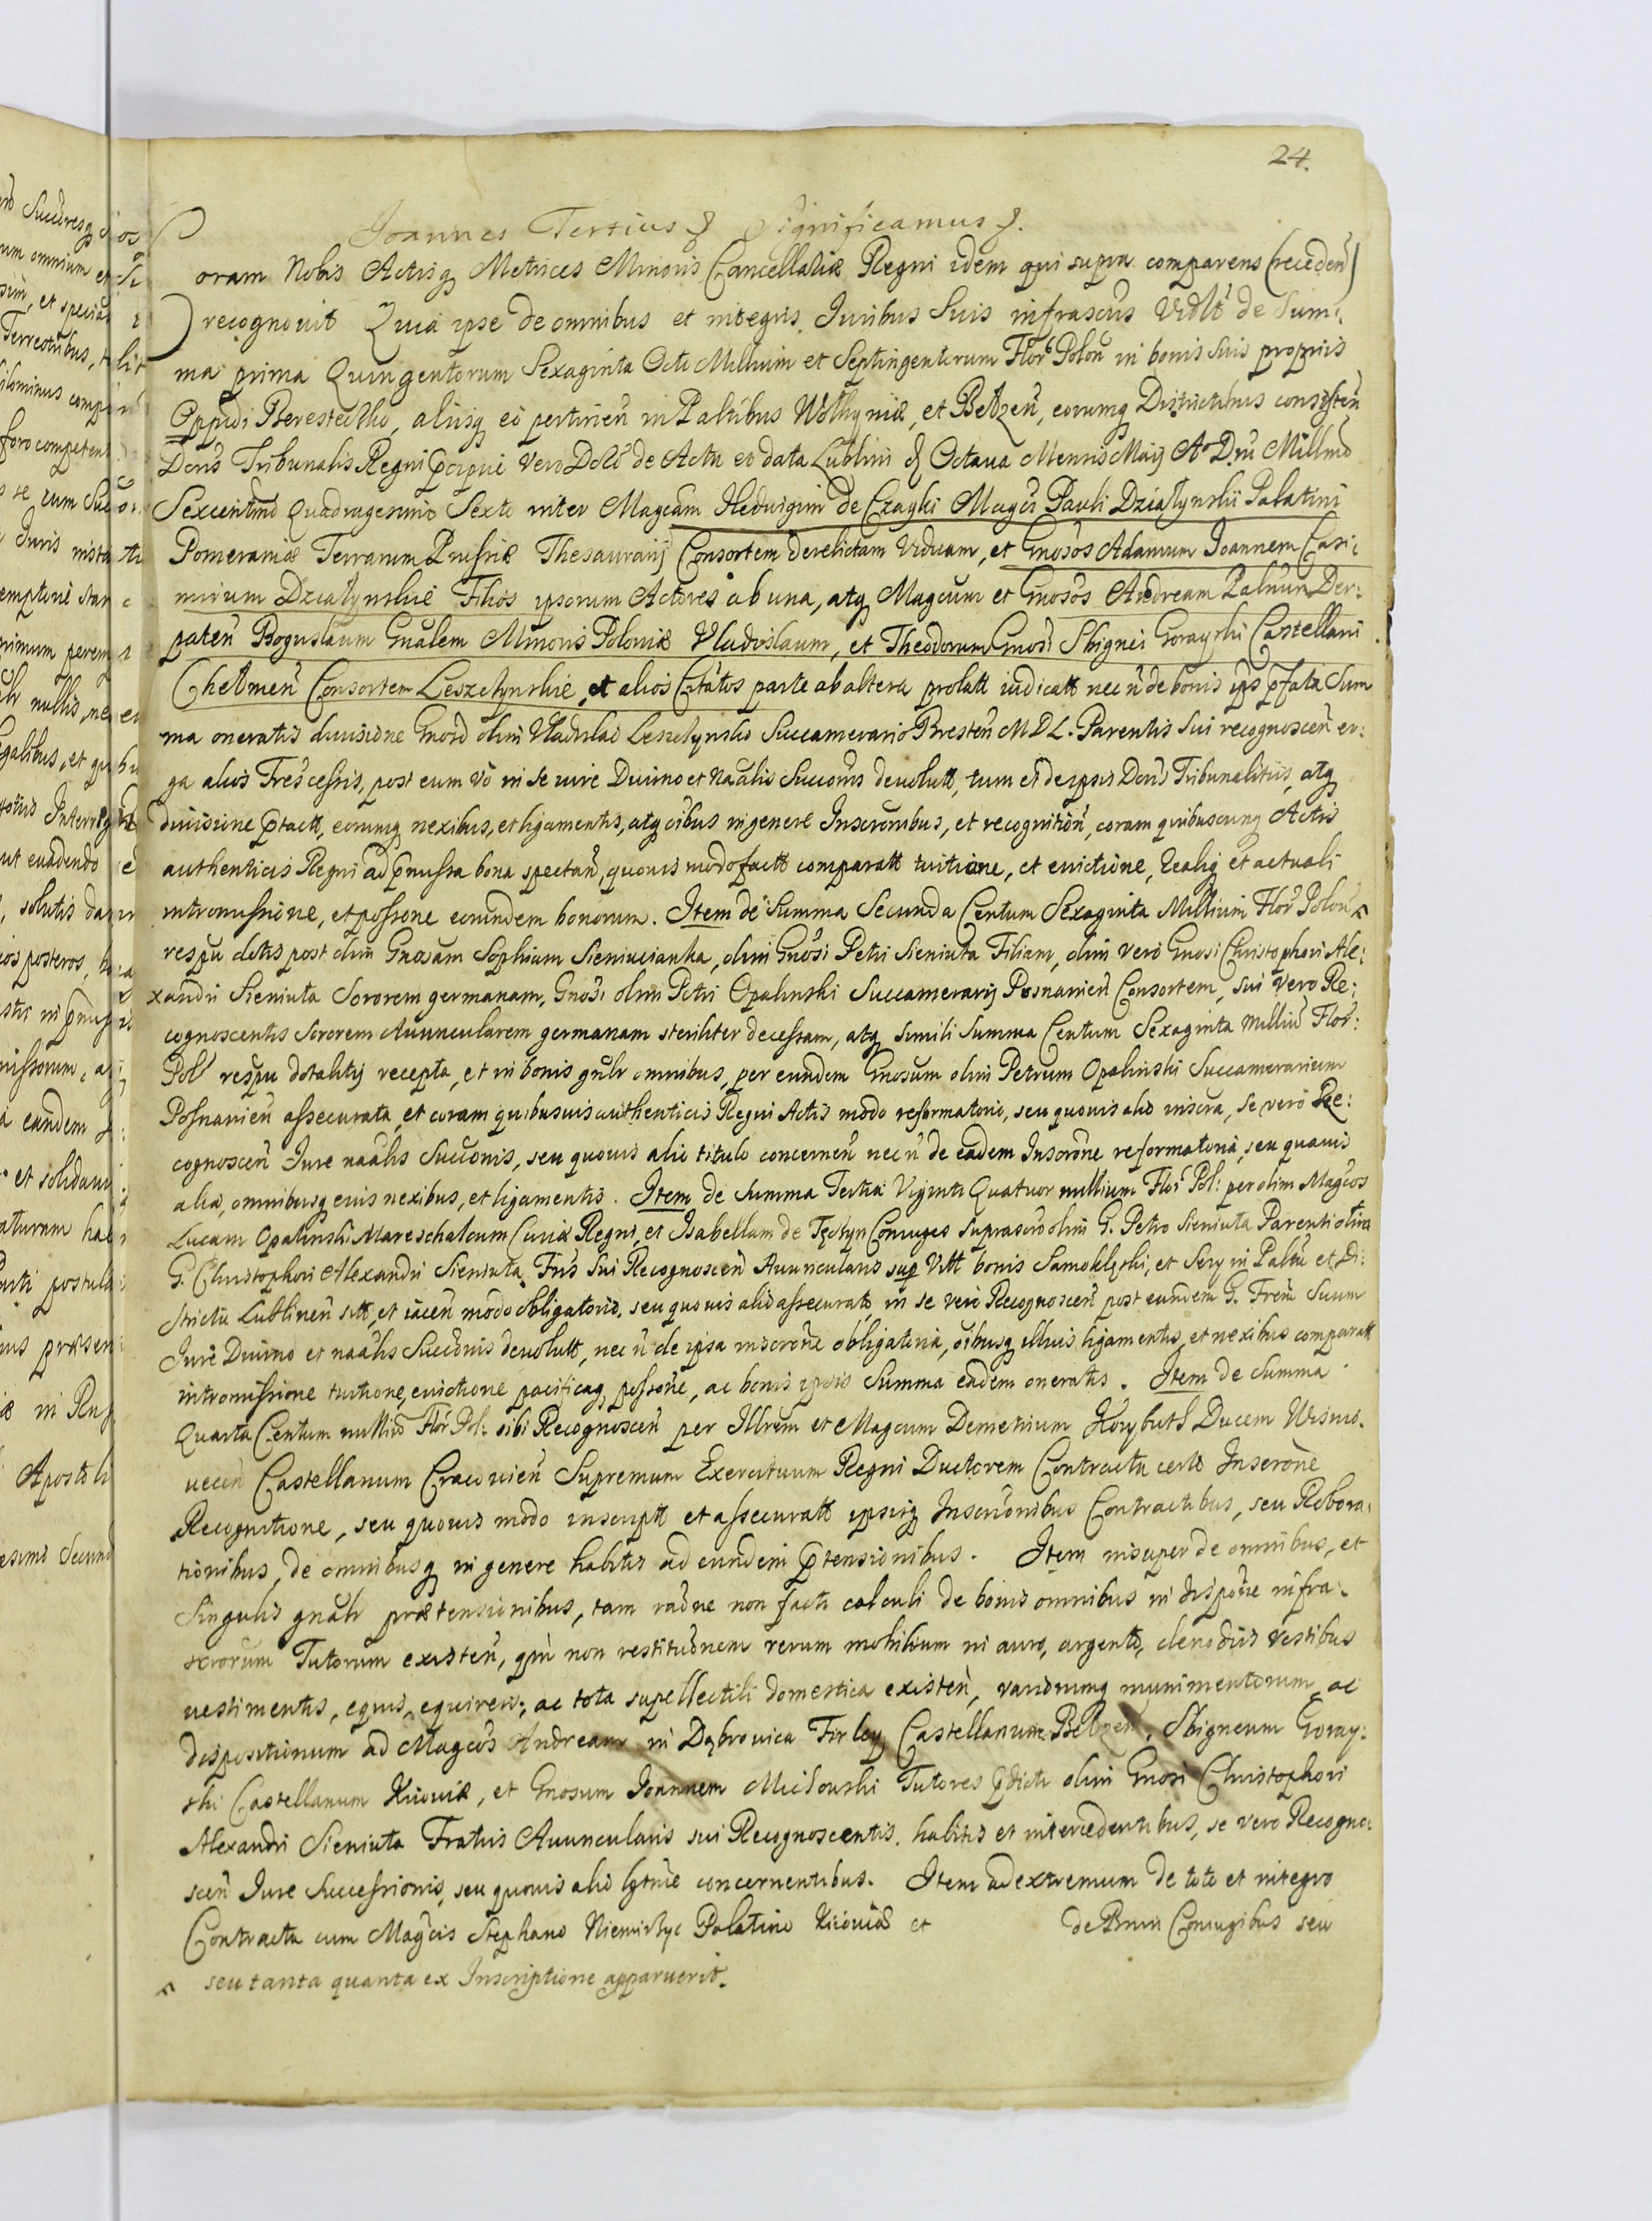 24.
Joannes Tertius & Significamus &.
Coram Nobis Actisq Metrices Minoris Cancellariæ Regni idem qui supra comparens (receden)
recognouit Quia ipse de omnibus et integris Iuribus Suis infrascris Vidlt de Sum:
ma prima Quingentorum Sexaginta Octo Millium et Septingentorum Flor Polon in bonis suis proprijs
Oppidi Berestecżko, alijsq ei pertinen in Paltibus Wołhyniæ, et Bełzen, eorumq Districtibus consisten
Decris Tribunalis Regni pcipui vero Decro de Actu et data Lublini & Octaua Mensis Maij Ao Dni Millmo
Sexcentmo Quadragesimo Sexto inter Magcam Heduigim de Czayki Magci Pauli Działynskii Palatini
Pomeraniæ Terrarum Prussiæ Thesaurarij Consortem derelictam Viduam, et Gnosos Adamum Joannem Casi:
mirum Działynskie Filios ipsorum Actores ab una, atq Magcum et Gnosos Andream Paltinum Der:
paten Boguslaum Gnalem Minoris Poloniæ Vladislaum, et Theodorum Gnosi Sbignei Gorayski Castellani
Chełmen Consortem Leszczynskie, et alios Citatos parte ab altera prolatt iudicatt nec n de bonis ips pfata Sum
ma oneratis diuisione Gnoso olim Vladislao Leszczynsko Succamerario Bresten M D L. Parentis Sui recognoscen er:
ga alios Fres cessis, post eum vo in se iure Diuino et naalis Succonis deuolutt, tum et de ipsis Decris Tribunalitijs, atq
diuisione ptactt, eorumq nexibus, et ligamentis, atq oibus in genere Inscronibus, et recognition, coram quibuscunq Actis
authenticis Regni ad pmissa bona spectan, quouis modo factt comparatt tuitione, et euictione, Realiq et actuali
intromissione, et possone eorundem bonorum. Item de Summa Secunda Centum Sexaginta Millium Flor Polon
respu dotis post olim Gnosam Sophiam Sieniucianka, olim Gnosi Petri Sieniuta Filiam, olim vero Gnosi Christophori Ale:
xandri Sieniuta Sororem germanam, Gnosi olim Petri Opalinski Succamerarij Posnanien Consortem, sui vero Re:
cognoscentis Sororem Auuncularem germanam steriliter decessam, atq simili Summa Centum Sexaginta milliu Flor:
Pol respu dotalitij recepta, et in bonis gnlr omnibus, per eundem Gnosum olim Petrum Opalinski Succamerarium
Posnanien assecurata, et coram quibusuis authenticis Regni Actis modo reformatorio, seu quouis alio inscra, se vero Re:
cognoscen Iure naalis Succonis, seu quouis alio titulo concernen nec n de eadem Inscrone reformatoria, seu quauis
alia, omnibusq eius nexibus, et ligamentis. Item de Summa Tertia Viginti Quatuor millium Flor Pol: per olim Magcos
Lucam Opalinski Mareschalcum Curiæ Regni, et Isabellam de Tęczyn Coniuges suprascro olim G. Petro Sieniuta Parenti olim
G. Christophori Alexandri Sieniuta Fris Sui Recognoscen Auuncularis sup Vltt bonis Samoklęski, et Sery in Paltu et Di:
strictu Lublinen sitt, et iacen modo obligatorio, seu quouis alio assecurato, in se vero Recognoscen post eundem G. Frem Suum
Iure Diuino et naalis Succonis deuolutt, nec n de ipsa inscrone obligatoria, oibusq illius ligamentis, et nexibus comparatt
intromissione tuitione, euictione pacificaq possone, ac bonis ipsis Summa eadem oneratis. Item de Summa
Quarta Centum milliu Flor Pol: sibi Recognoscen per Illrem et Magcum Demetrium Korybuth Ducem Wisnio.
uecen Castellanum Cracouien Supremum Exercituum Regni Ductorem Contractu certo Inscrone
Recognitione, seu quouis modo inscriptt et assecuratt ipsisq Inscrionibus Contractibus, seu Robora:
tionibus, de omnibusq in genere habitis ad eundem ptensionibus. Item insuper de omnibus, et
Singulis gnalr prætensionibus, tam raone non facti calculi de bonis omnibus in dispone infra:
scrorum Tutorum existen, qm non restituonem rerum mobilium in auro, argento, clenodijs vestibus
uestimentis, equis, equireis, ac tota supellectili domestica existen, variorumq munimentorum, ac
dispositionum ad Magcos Andream in Dąbrouica Firley Castellanum Bełzen, Sbigneum Goray:
ski Castellanum Kiiouiæ, et Gnosum Joannem Mieiouski Tutores pdicti olim Gnosi Christophori
Alexandri Sieniuta Fratris Auuncularis sui Recognoscentis, habitis et intercedentibus, se vero Recogno:
scen Iure Successionis, seu quouis alio lgtme concernentibus. Item ad extremum de toto et integro
Contractu cum Magcis Stephano Niemirzyc Palatino Kiiouiæ et de Bnin Coniugibus seu
seu tanta quanta ex Inscriptione apparuerit.